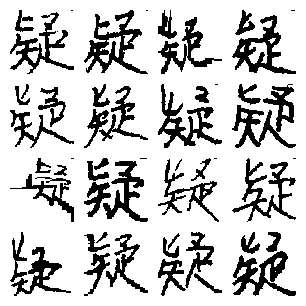 疑疑疑疑
疑疑疑疑
疑疑疑疑
疑疑疑疑